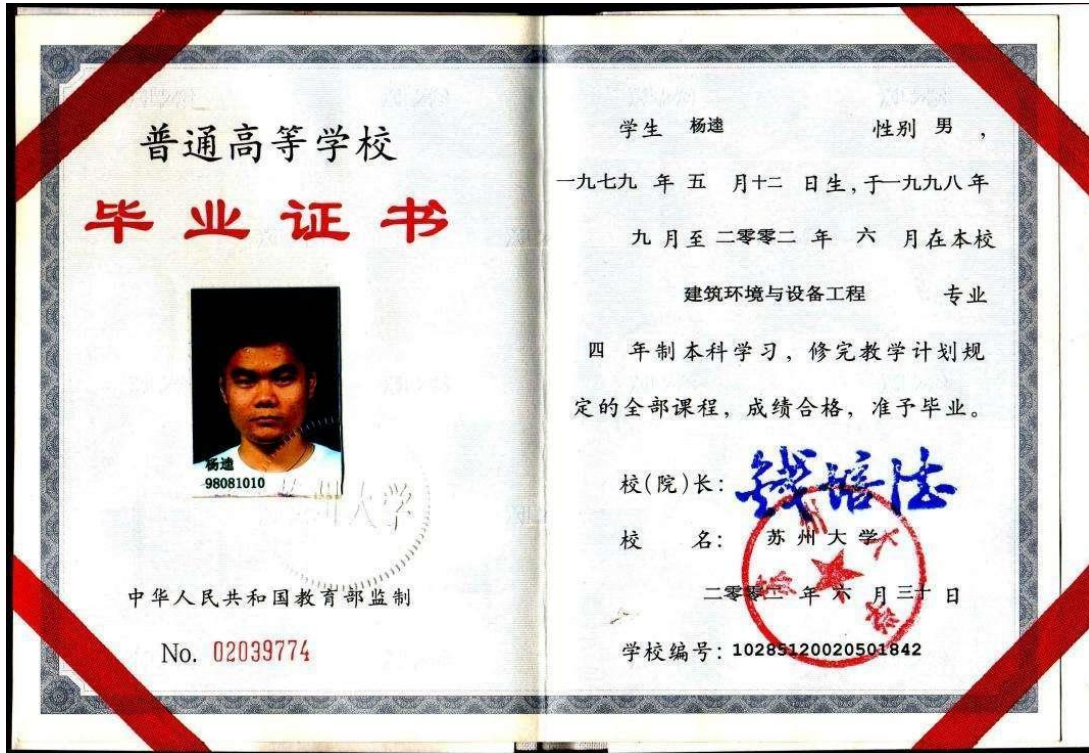 普通高等学校
毕业证书
杨逵
98081010
苏州大学
中华人民共和国教育部监制
No. 02039774
学生 杨逵 性别 男，
一九七九 年 五 月十二 日生，于一九九八年
九 月至 二零零二 年 六 月在本校
建筑环境与设备工程 专业
四 年制本科学习，修完教学计划规
定的全部课程，成绩合格，准予毕业。
校(院)长：钱培德
校 名： 苏州大学
二零零二 年 六 月三十 日
学校编号：10285120020501842